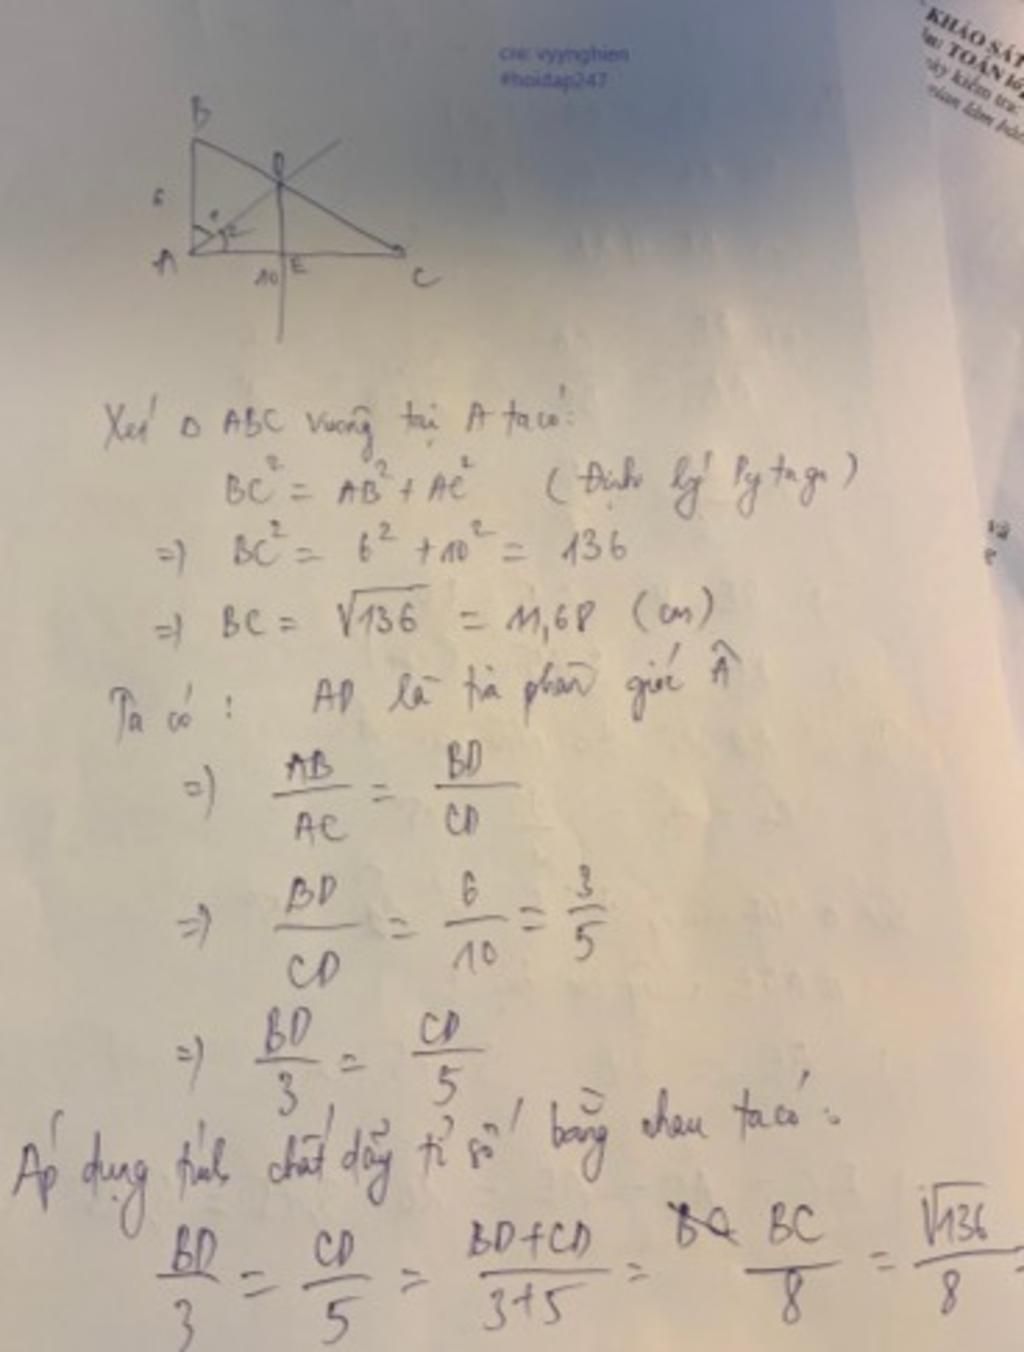 cre: vyynghien
#hoidap247
KHẢO SÁT
TOÁN lớp
này kiểm tra:
gian làm bài:
B
D
6
1
2
A
10
E
C
và
Xét Δ ABC vuông tại A ta có:
BC² = AB² + AC² (Định lý Pytago)
=> BC² = 6² + 10² = 136
=> BC = √136 = 11,68 (cm)
Ta có: AD là tia phân giác Â
=> AB/AC = BD/CD
=> BD/CD = 6/10 = 3/5
=> BD/3 = CD/5
Áp dụng tính chất dãy tỉ số bằng nhau ta có:
BD/3 = CD/5 = BD+CD/3+5 = BC/8 = √136/8 =